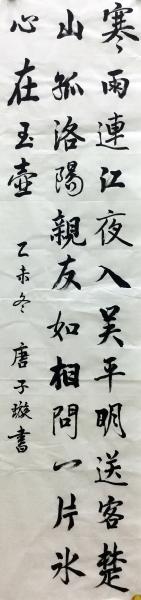 寒雨連江夜入吴平明送客楚
山孤洛陽親友如相問一片氷
心在玉壺
乙未冬 唐子璇書